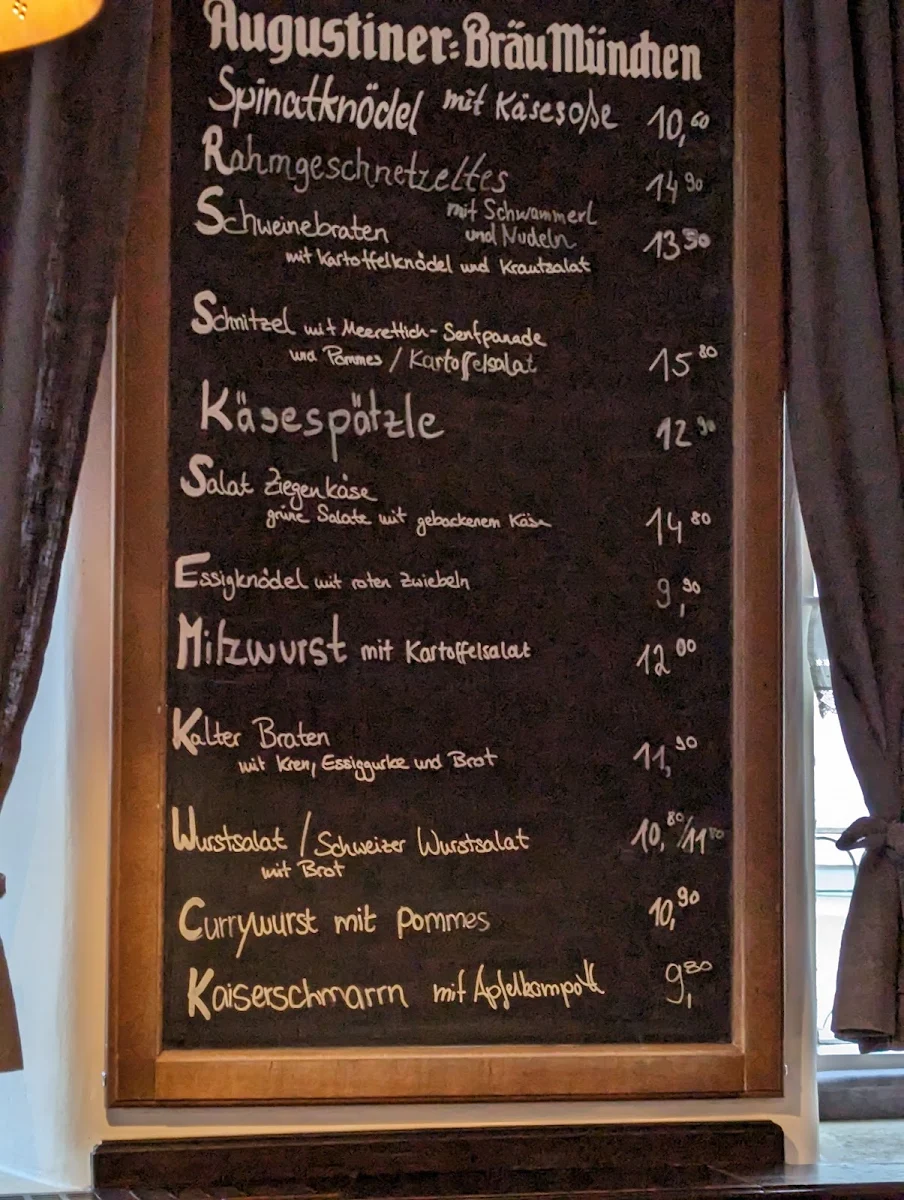 Augustiner-Bräu München
Spinatknödel mit Käsesoße 10,60
Rahmgeschnetzeltes 14 90
mit Schwammerl
und Nudeln
Schweinebraten 13 50
mit Kartoffelknödel und Krautsalat
Schnitzel mit Meerettich-Senfpanade
und Pommes / Kartoffelsalat 15 80
Käsespätzle 12 90
Salat Ziegenkäse
grüne Salate mit gebackenem Käse 14 80
Essigknödel mit roten Zwiebeln 9,90
Milzwurst mit Kartoffelsalat 12 00
Kalter Braten
mit Kren, Essiggurke und Brot 11,90
Wurstsalat / Schweizer Wurstsalat 10,80/11
mit Brot
Currywurst mit Pommes 10,90
Kaiserschmarrn mit Apfelkompott 9,80